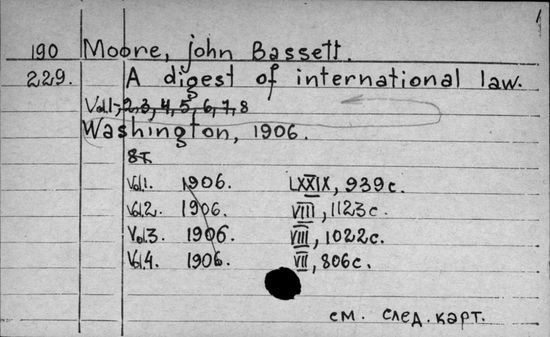 190 Moore, john Bassett.
229. A digest of international law.
Vol.1-2,3,4,5,6,7,8
Washington, 1906.
8т.
Vol.1. 1906. LXXIX, 939c.
Vol.2. 1906. VIII, 1123c.
Vol.3. 1906. VIII, 1022c.
Vol.4. 1906. VII, 806c.
см. след. карт.